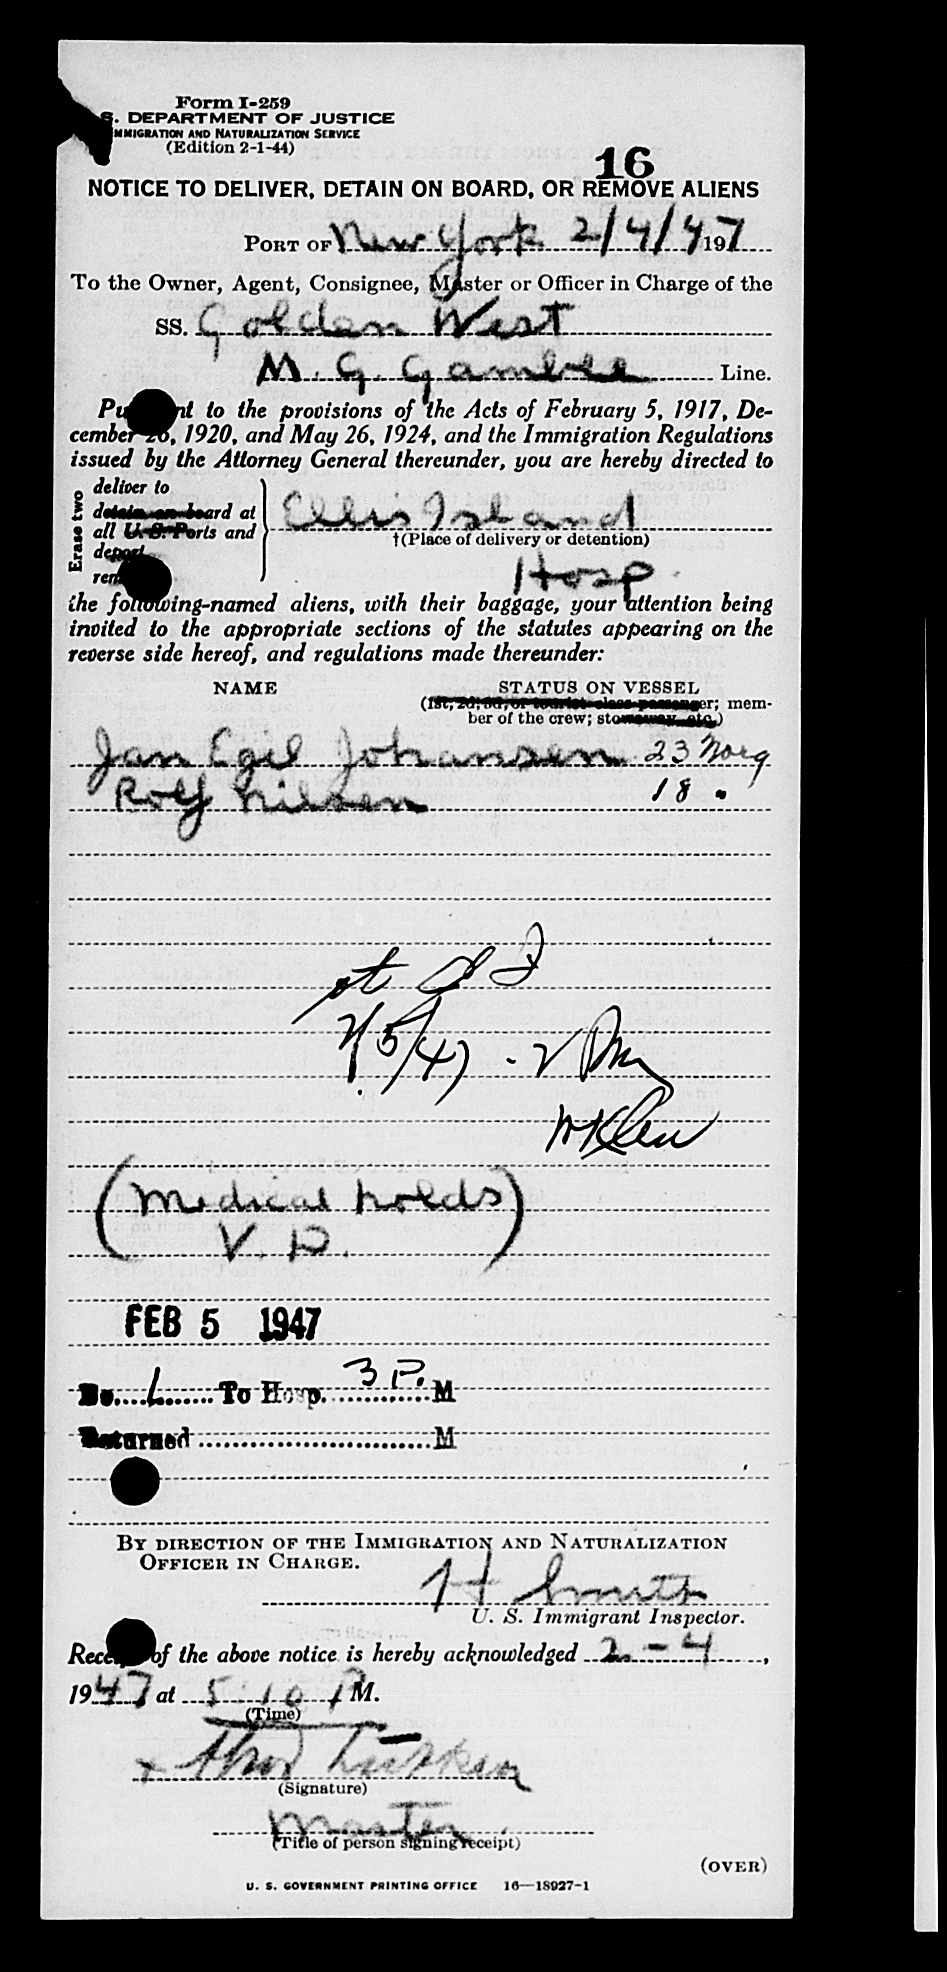 Form I-259
S. DEPARTMENT OF JUSTICE
IMMIGRATION AND NATURALIZATION SERVICE
(Edition 2-1-44)
16
NOTICE TO DELIVER, DETAIN ON BOARD, OR REMOVE ALIENS
PORT OF New York 2/4/47 197
To the Owner, Agent, Consignee, Master or Officer in Charge of the
SS. Golden West
M. G. Gamble Line.
Pu nt to the provisions of the Acts of February 5, 1917, De-
cember 26, 1920, and May 26, 1924, and the Immigration Regulations
issued by the Attorney General thereunder, you are hereby directed to
Erase two
deliver to
detain on board at
all U. S. Ports and
deport
rem
Ellis Island
†(Place of delivery or detention)
Hosp.
the following-named aliens, with their baggage, your attention being
invited to the appropriate sections of the statutes appearing on the
reverse side hereof, and regulations made thereunder:
NAME STATUS ON VESSEL
(1st, 2d, 3d, or tourist class passenger; mem-
ber of the crew; stowaway, etc.)
Jan Egil Johansen 23 Norg
Rolf Nilsen 18 "
at
2/5/47 - 2 PM
(Medical holds)
V. D.
FEB 5 1947
No. 1 To Hosp. 3 P. M
Returned M
BY DIRECTION OF THE IMMIGRATION AND NATURALIZATION
OFFICER IN CHARGE.
H Smith
U. S. Immigrant Inspector.
Rece of the above notice is hereby acknowledged 2 - 4,
1947 at 5 10 P M.
(Time)
(Signature)
Master
(Title of person signing receipt)
(OVER)
U. S. GOVERNMENT PRINTING OFFICE 16—18927-1